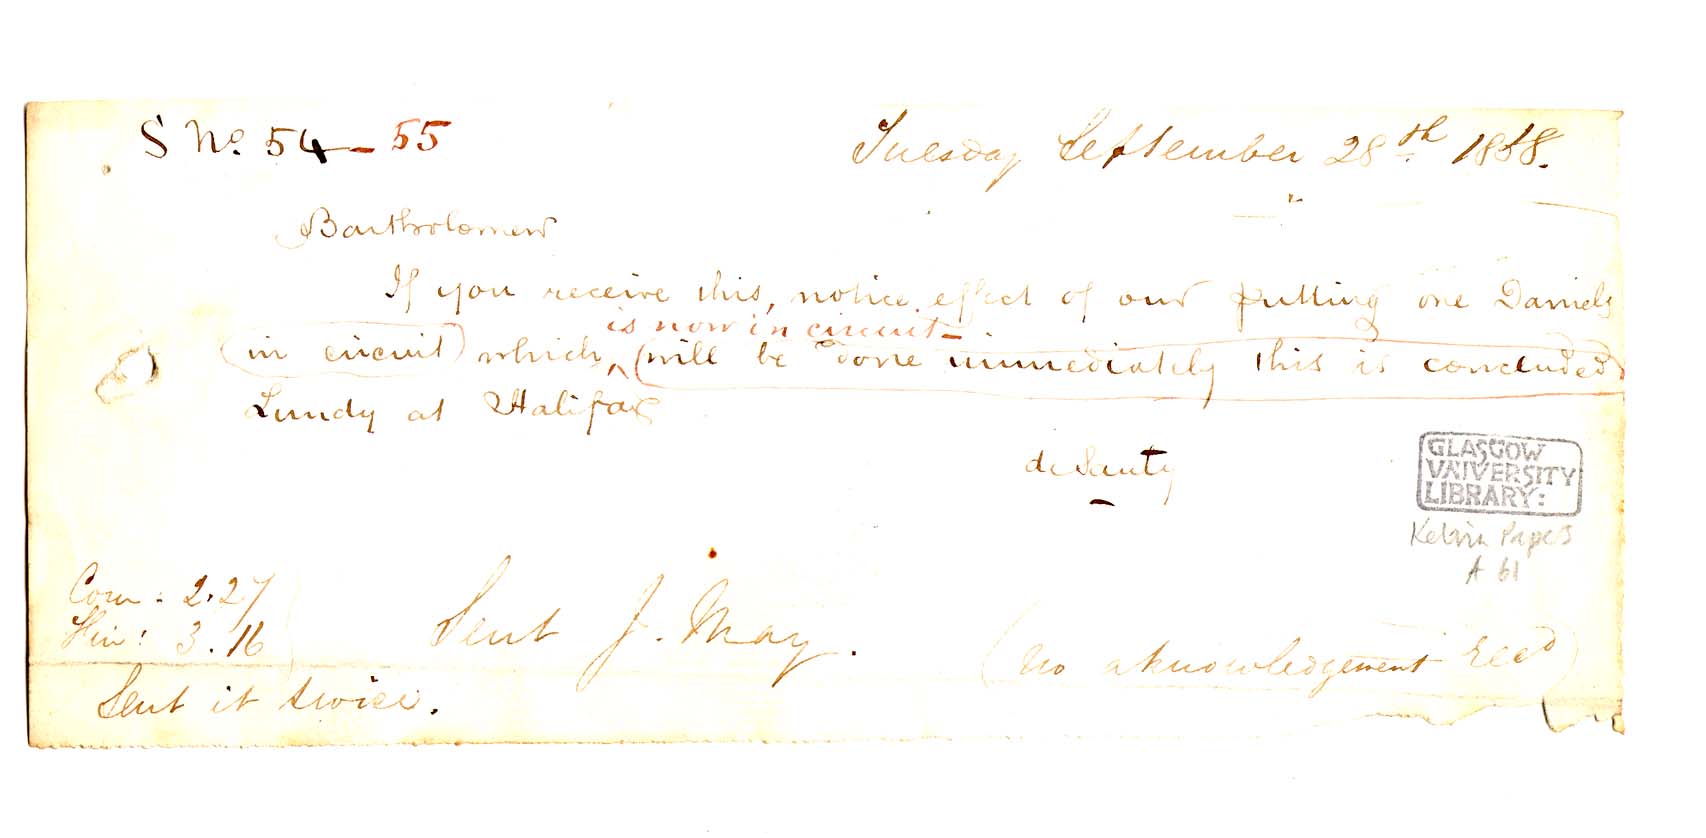 S No. 54 - 55
Tuesday September 28th 1858.
Bartholomew
If you receive this, notice effect of our putting one Daniels
is now in circuit -
(in circuit) which (will be done immediately this is concluded)
Lundy at Halifax
de Sauty
GLASGOW
UNIVERSITY
LIBRARY:
Kelvin Papers
A 61
Com: 2.27
Fin: 3.16
Sent J. May.
(No aknowledgement Recd)
Sent it twice.